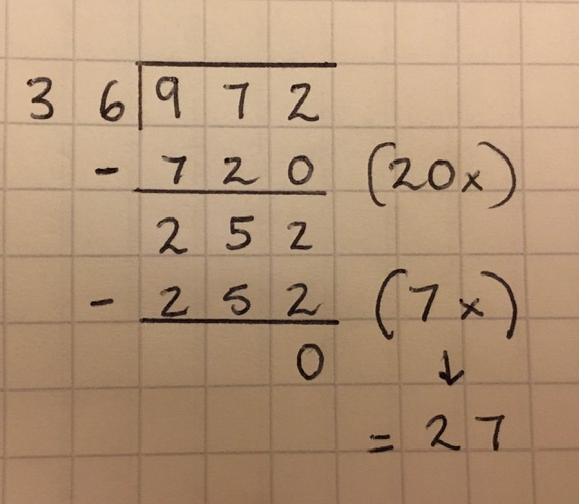 3 6 9 7 2
- 7 2 0 (20x)
2 5 2
- 2 5 2 (7x)
0 ↓
= 2 7